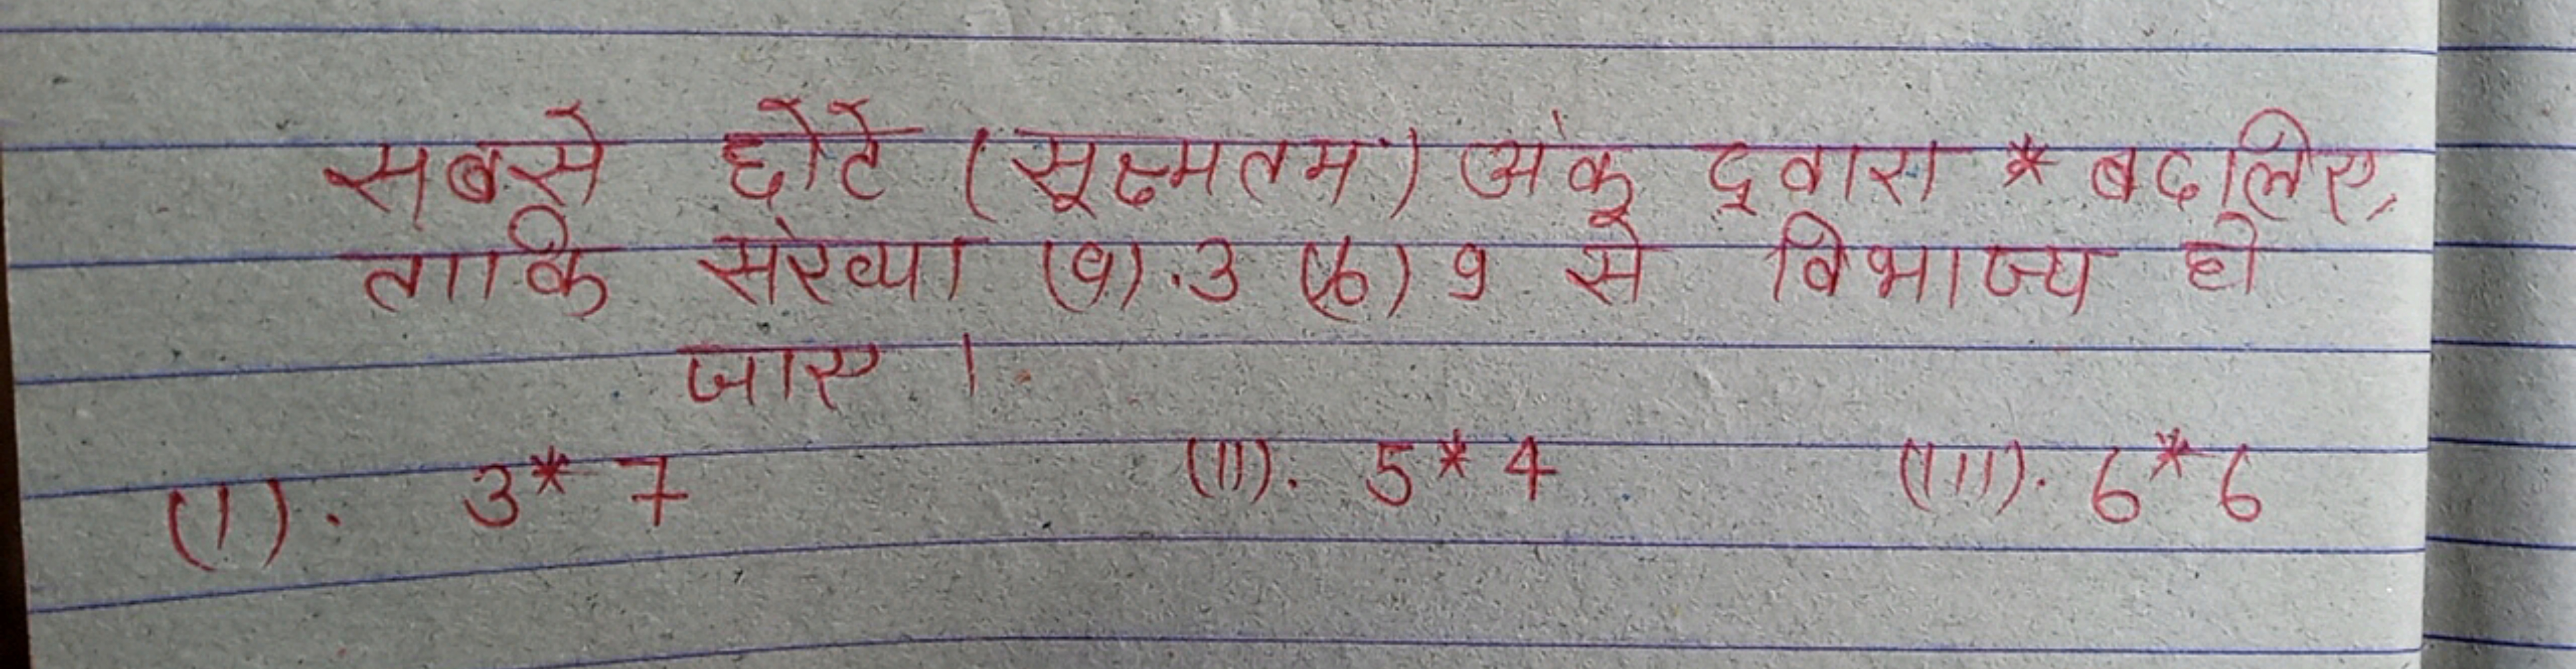 सबसे छोटे (सूक्ष्मतम) अंक द्वारा * बदलिए,
ताकि संख्या (a). 3 (b) 9 से विभाज्य हो
जाए ।
(I). 3*7 (II). 5*4 (III). 6*6